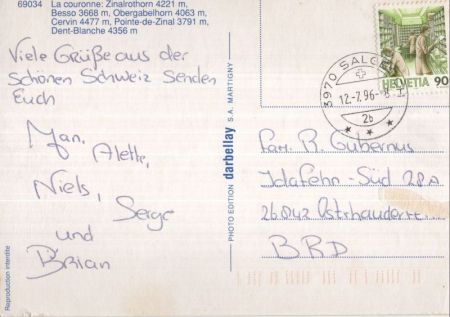 69034 La couronne: Zinalrothorn 4221 m,
Besso 3668 m, Obergabelhorn 4063 m,
Cervin 4477 m, Pointe-de-Zinal 3791 m,
Dent-Blanche 4356 m
Viele Grüße aus der
schönen Schweiz senden
Euch
Alette,
Niels,
Serge
und
Brian
Reproduction interdite
PHOTO EDITION darbellay S.A. MARTIGNY
HELVETIA 90
3970 SALG
12.-7.96-
2b
Fam. R. Gubernus
Idafehn-Süd 28A
26842 Ostrhauderfehn
BRD